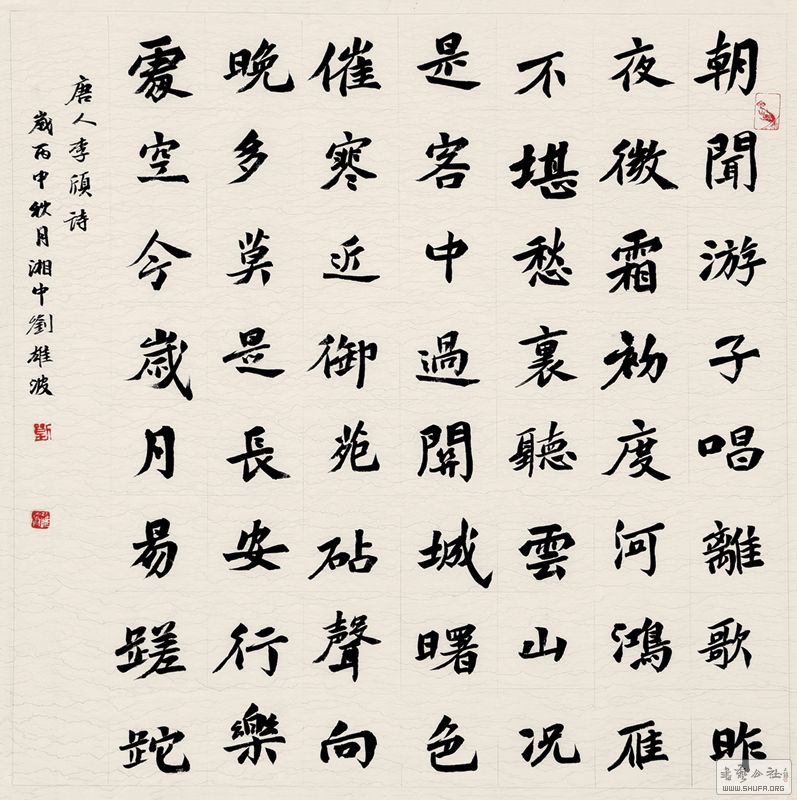 朝聞游子唱離歌昨
夜微霜初度河鴻雁
不堪愁裏聽雲山况
是客中過關城曙色
催寒近御苑砧聲向
晚多莫是長安行樂
處空今歲月易蹉跎
唐人李頎詩
歲丙申秋月湘中劉雄波
書法公社
WWW.SHUFA.ORG